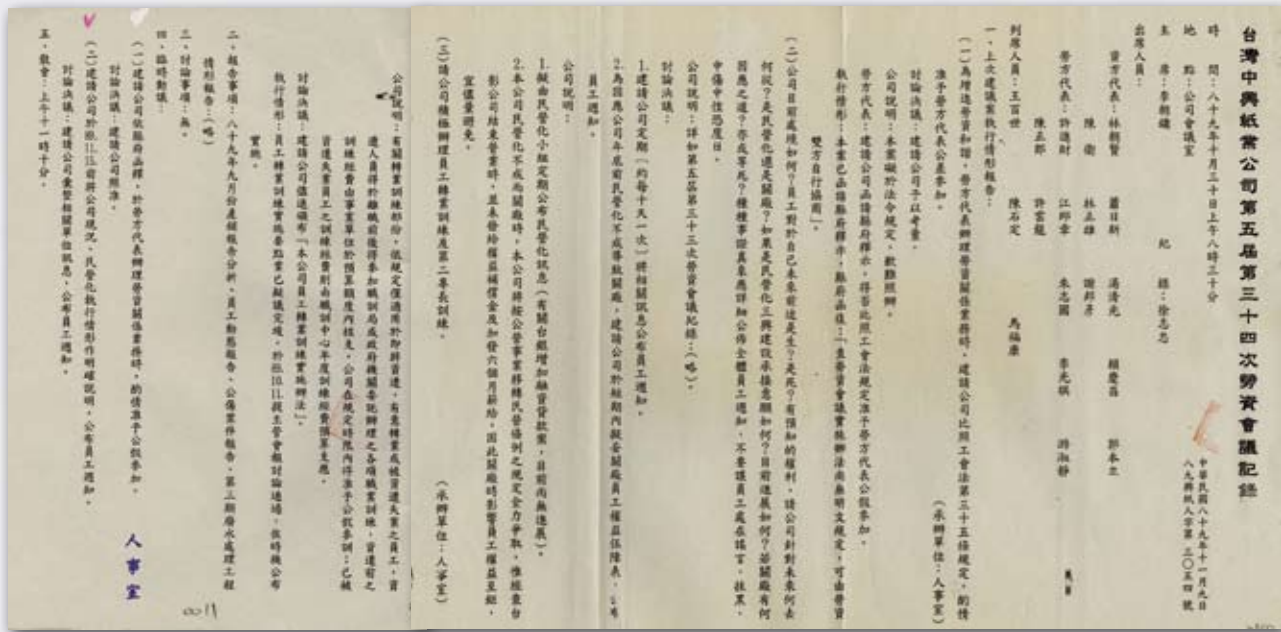 台灣中興紙業公司第五屆第三十四次勞資會議記錄
中華民國八十九年十一月九日
八九興紙人字第三〇五四號
時 間：八十九年十月三十日上午八時三十分
地 點：公司會議室
主 席：李朝鏞 紀 錄：徐志忠
出席人員：
資方代表：林朝賢 蕭日新 馮清光 賴慶昌 郭本立
陳 衛 林正雄 謝邦彥
勞方代表：許進財 江即章 朱志國 李光祺 游淑靜
陳正郎 許雲龍
列席人員：王百世 陳石定 馬福康
一、上次建議案執行情形報告：
(一)為增進勞資和諧，勞方代表辦理勞資關係業務時，建請公司比照工會法第三十五條規定，酌情
准予勞方代表公差參加。 (承辦單位：人事室)
討論決議：建請公司予以考量。
公司說明：本案礙於法令規定，歉難照辦。
勞方代表：建請公司函請縣府釋示，得否比照工會法規定准予勞方代表公假參加。
執行情形：本案已函請縣府釋示，縣府函復：「查勞資會議實施辦法尚無明文規定，可由勞資
雙方自行協商」。
(二)公司目前處境如何？員工對於自己未來前途是生？是死？有預知的權利，請公司針對未來何去
何從？是民營化還是關廠？如果是民營化三興建設承接意願如何？目前進展如何？若關廠有何
因應之道？亦或等死？種種事證真象應詳細公佈全體員工週知，不要讓員工處在謠言、抹黑、
中傷中惶恐度日。
公司說明：詳如第五屆第三十三次勞資會議紀錄：(略)。
討論決議：
1.建請公司定期(約每十天一次)將相關訊息公布員工週知。
2.為因應公司年底前民營化不成導致關廠，建請公司於短期內擬妥關廠員工權益伍陳表，公布
員工週知。
公司說明：
1.擬由民營化小組定期公布民營化訊息(有關台銀增加融資貸款案，目前尚無進展)。
2.本公司民營化不成而關廠時，本公司將按公營事業移轉民營條例之規定全力爭取，惟據查台
影公司結束營業時，並未發給權益補償金及加發六個月薪給，因此關廠時影響員工權益至鉅，
宜儘量避免。
(三)請公司積極辦理員工轉業訓練及第二專長訓練。 (承辦單位：人事室)
公司說明：有關轉業訓練部份，依規定僅適用於即將資遣、有意轉業或被資遣失業之員工，資
遣人員得於離職前後得參加職訓局或政府機關委託辦理之各項職業訓練，資遣前之
訓練經費由事業單位於預算額度內核支，公司在規定時限內得准予公假參訓；已被
資遣失業員工之訓練經費則由職訓中心年度訓練經費預算支應。
討論決議：建請公司儘速頒布「本公司員工轉業訓練實施辦法」。
執行情形：員工轉業訓練實施要點業已擬議完竣，於89.10.11.提主管會報討論通過，俟時機公布
實施。
二、報告事項：八十九年九月份產銷報告分析、員工動態報告、公傷案件報告、第三期廢水處理工程
情形報告：(略)
三、討論事項：無。
四、臨時動議：
(一)建請公司依縣府函釋，於勞方代表辦理勞資關係業務時，酌情准予公假參加。
討論決議：建請公司照准。
(二)建請公司於89.11.15.前將公司現況、民營化執行情形作明確說明，公布員工週知。
討論決議：建請公司彙整相關單位訊息，公布員工週知。
五、散會：上午十一時十分。
人事室